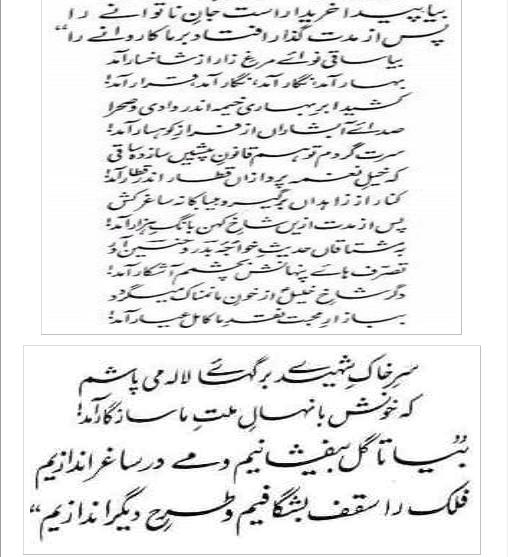 بیا پیدا خریدار است جانِ ناتوانے را
پس از مدت گذار افتاد بر ما کاروانے را“
بیا ساقی نوائے مرغِ زار از شاخسار آمد
بہار آمد، نگار آمد، نگار آمد، قرار آمد!
کشید ابرِ بہاری خیمہ اندر وادی و صحرا
صدائے آبشاراں از فرازِ کوہسار آمد!
سرت گردم تو ہم قانونِ پیشیں ساز دہ ساقی
کہ خیلِ نغمہ پردازاں قطار اندر قطار آمد!
کنار از زاہداں برگیر و بیباکانہ ساغر کش
پس از مدت ازیں شاخِ کہن بانگِ ہزار آمد!
بہ مشتاقاں حدیثِ خواجۂ بدر و حنین آور
تصرف ہائے پنہانش بچشم آشکار آمد!
دگر شاخِ خلیلؑ از خونِ ما نمناک می گردد
ببازارِ محبت نقدِ ما کامل عیار آمد!
سرِ خاکِ شہیدے برگہائے لالہ می پاشم
کہ خونش با نہالِ ملتِ ما سازگار آمد!
”بیا تا گل بیفشانیم و مے در ساغر اندازیم
فلک را سقف بشگافیم و طرحِ دیگر اندازیم“